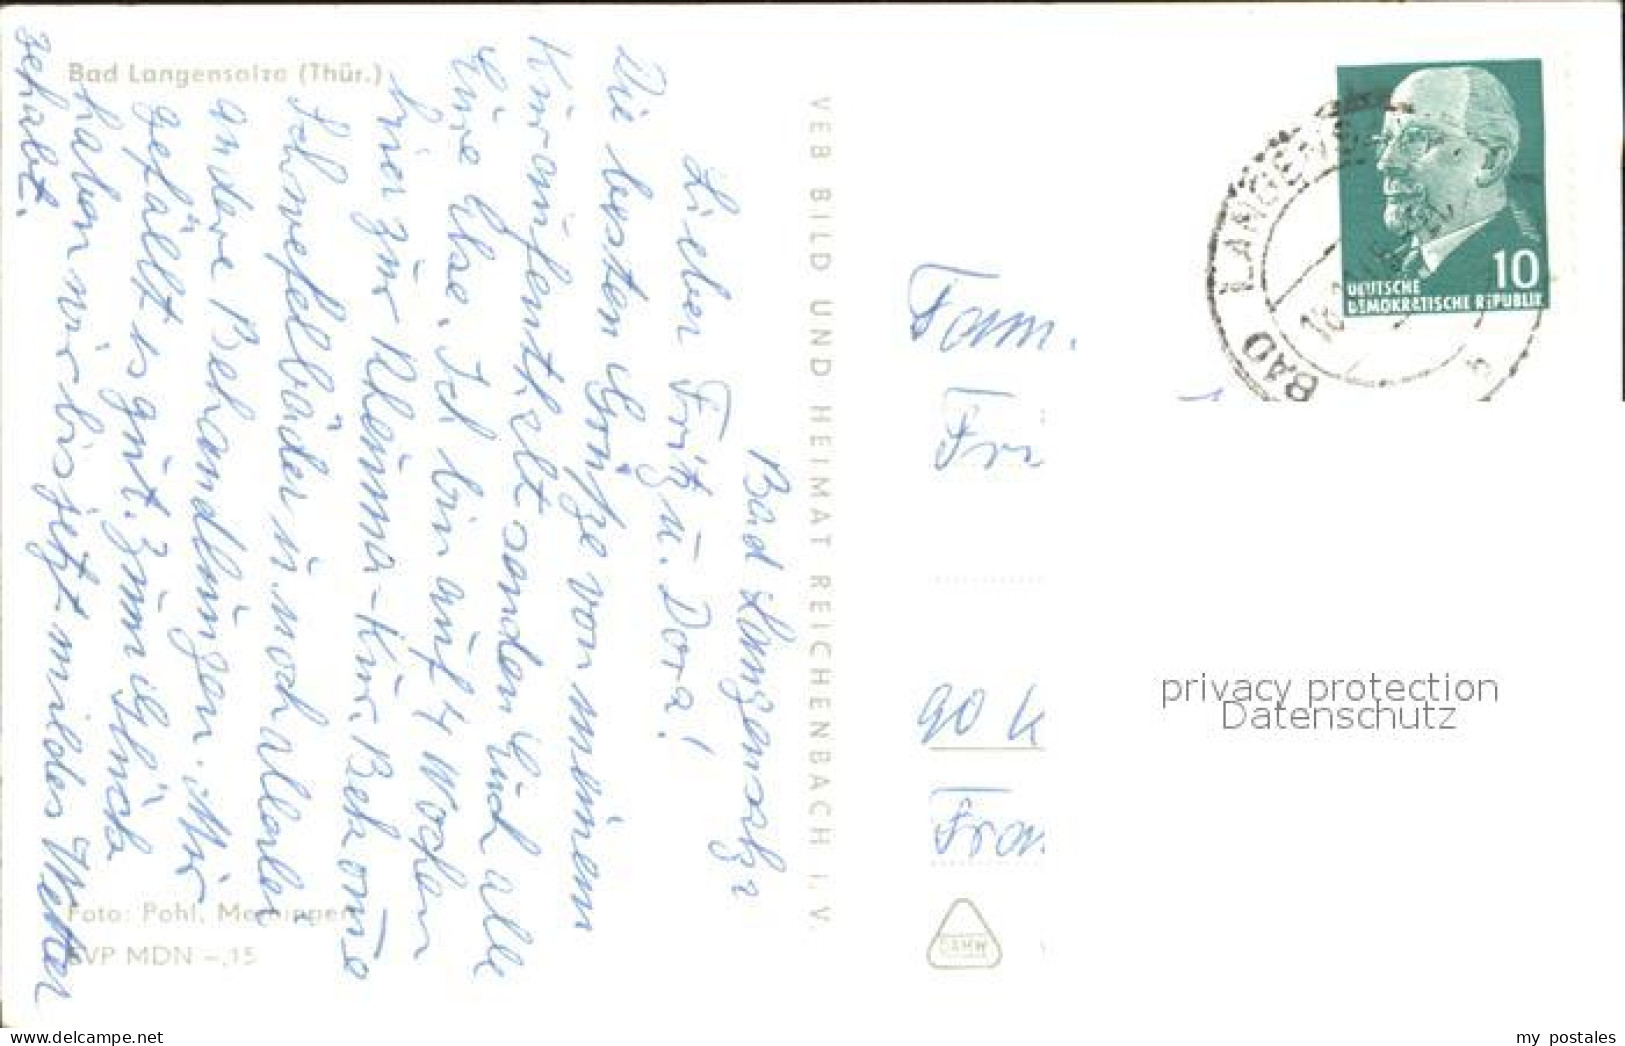 Bad Langensalza (Thür.)
Bad Langensalza
Lieber Fritz u. Dora!
Die besten Grüße von meinem
Kuraufenthalt senden Euch alle
Eure Else. Ich bin auf 4 Wochen
hier zur Rheuma-Kur. Bekomme
Schwefelbäder u. noch allerlei
andere Behandlungen. Mir
gefällt es gut. Zum Glück
haben wir bis jetzt mildes Wetter
gehabt.
Foto: Pohl,
EVP MDN -,15
VEB BILD UND HEIMAT REICHENBACH I. V.
BAD LANGENS
10
DEUTSCHE
DEMOKRATISCHE REPUBLIK
Fam.
Fri
90 K
Fran
DAMW
privacy protection
Datenschutz
www.delcampe.net
my_postales